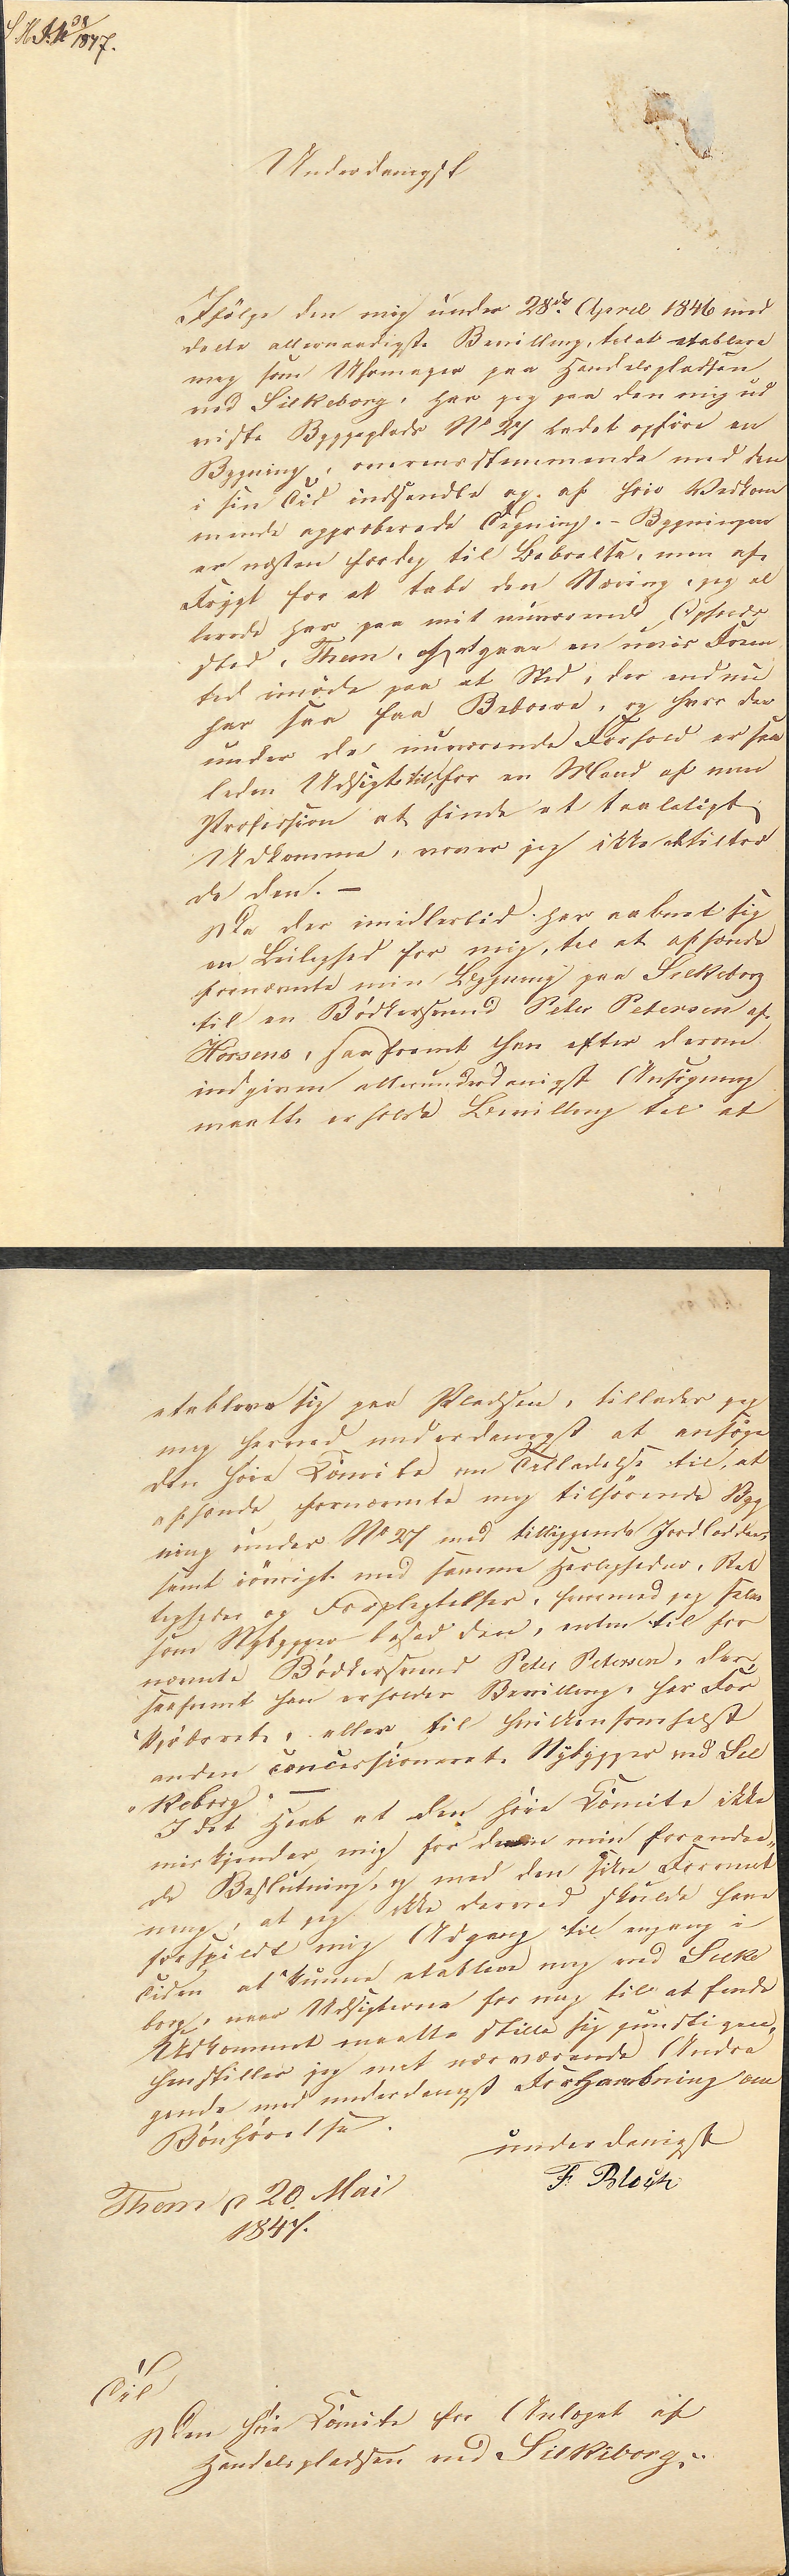 1847.
Underdanigst
Ifölge den mig under 28de April 1846 med
deelte allernaadigste Bevilling, til at etablere
mig som Uhrmager paa Handelspladsen
ved Silkeborg, har jeg paa den mig ud
viste Byggeplads No 27 ladet opföre en
Bygning, overensstemmende med den
i sin Tid indsendte og af höie Vedkom
mende approberede Tegning. – Bygningen
er næsten færdig til Beboelse, men af
Frygt for at tabe den Næring, jeg al
lerede har paa mit nuværende Opholds
sted, Them, og at gaae en uvis Frem
tid imöde paa et Sted, der endnu
har saa faa Beboere, og hvor der
under de nuværende Forhold er saa
liden Udsigt til, for en Mand af min
Profession at finde et taaleligt
Udkomme, vover jeg ikke at tiltræ
de den. –
Da der imidlertid har aabnet sig
en Leilighed for mig, til at afhænde
fornævnte min Bygning paa Silkeborg
til en Bödkersvend Peter Petersen af
Horsens, saafremt han efter derom
indgiven allerunderdanigst Ansögning
maatte erholde Bevilling til at
etablere sig paa Pladsen, tillader jeg
mig herved underdanigst at ansöge
den höie Comite om Tilladelse til, at
afhænde fornævnte mig tilhörende Byg
ning under No 27 med tilliggende Jordlodder,
samt iövrigt med samme Herligheder, Ret
tigheder og Forpligtelser, hvormed jeg selv
som Nybygger besad den, enten til for
nævnte Bödkersvend Peter Petersen, der,
saafremt han erholder Bevilling, har For
kjöbsret, eller til hvilkensomhelst
anden concessioneret Nybygger ved Sil
keborg. –
I det Haab at den höie Comite ikke
miskjender mig for denne min forandre
de Beslutning, og med den sikre Formee
ning, at jeg ikke derved skulde have
forspildt mig Adgang til engang i
Tiden at kunne etablere mig ved Silke
borg, naar Udsigterne for mig til at finde
Udkommet maatte stille sig gunstigere,
henstiller jeg mit nærværende Andra
gende med underdanigst Forhaabning om
Bönhörelse.
underdanigst
F. Bloch
Them d 20. Mai
1847.
Til
Den höie Comite for Anlæget af
Handelspladsen ved Silkeborg.